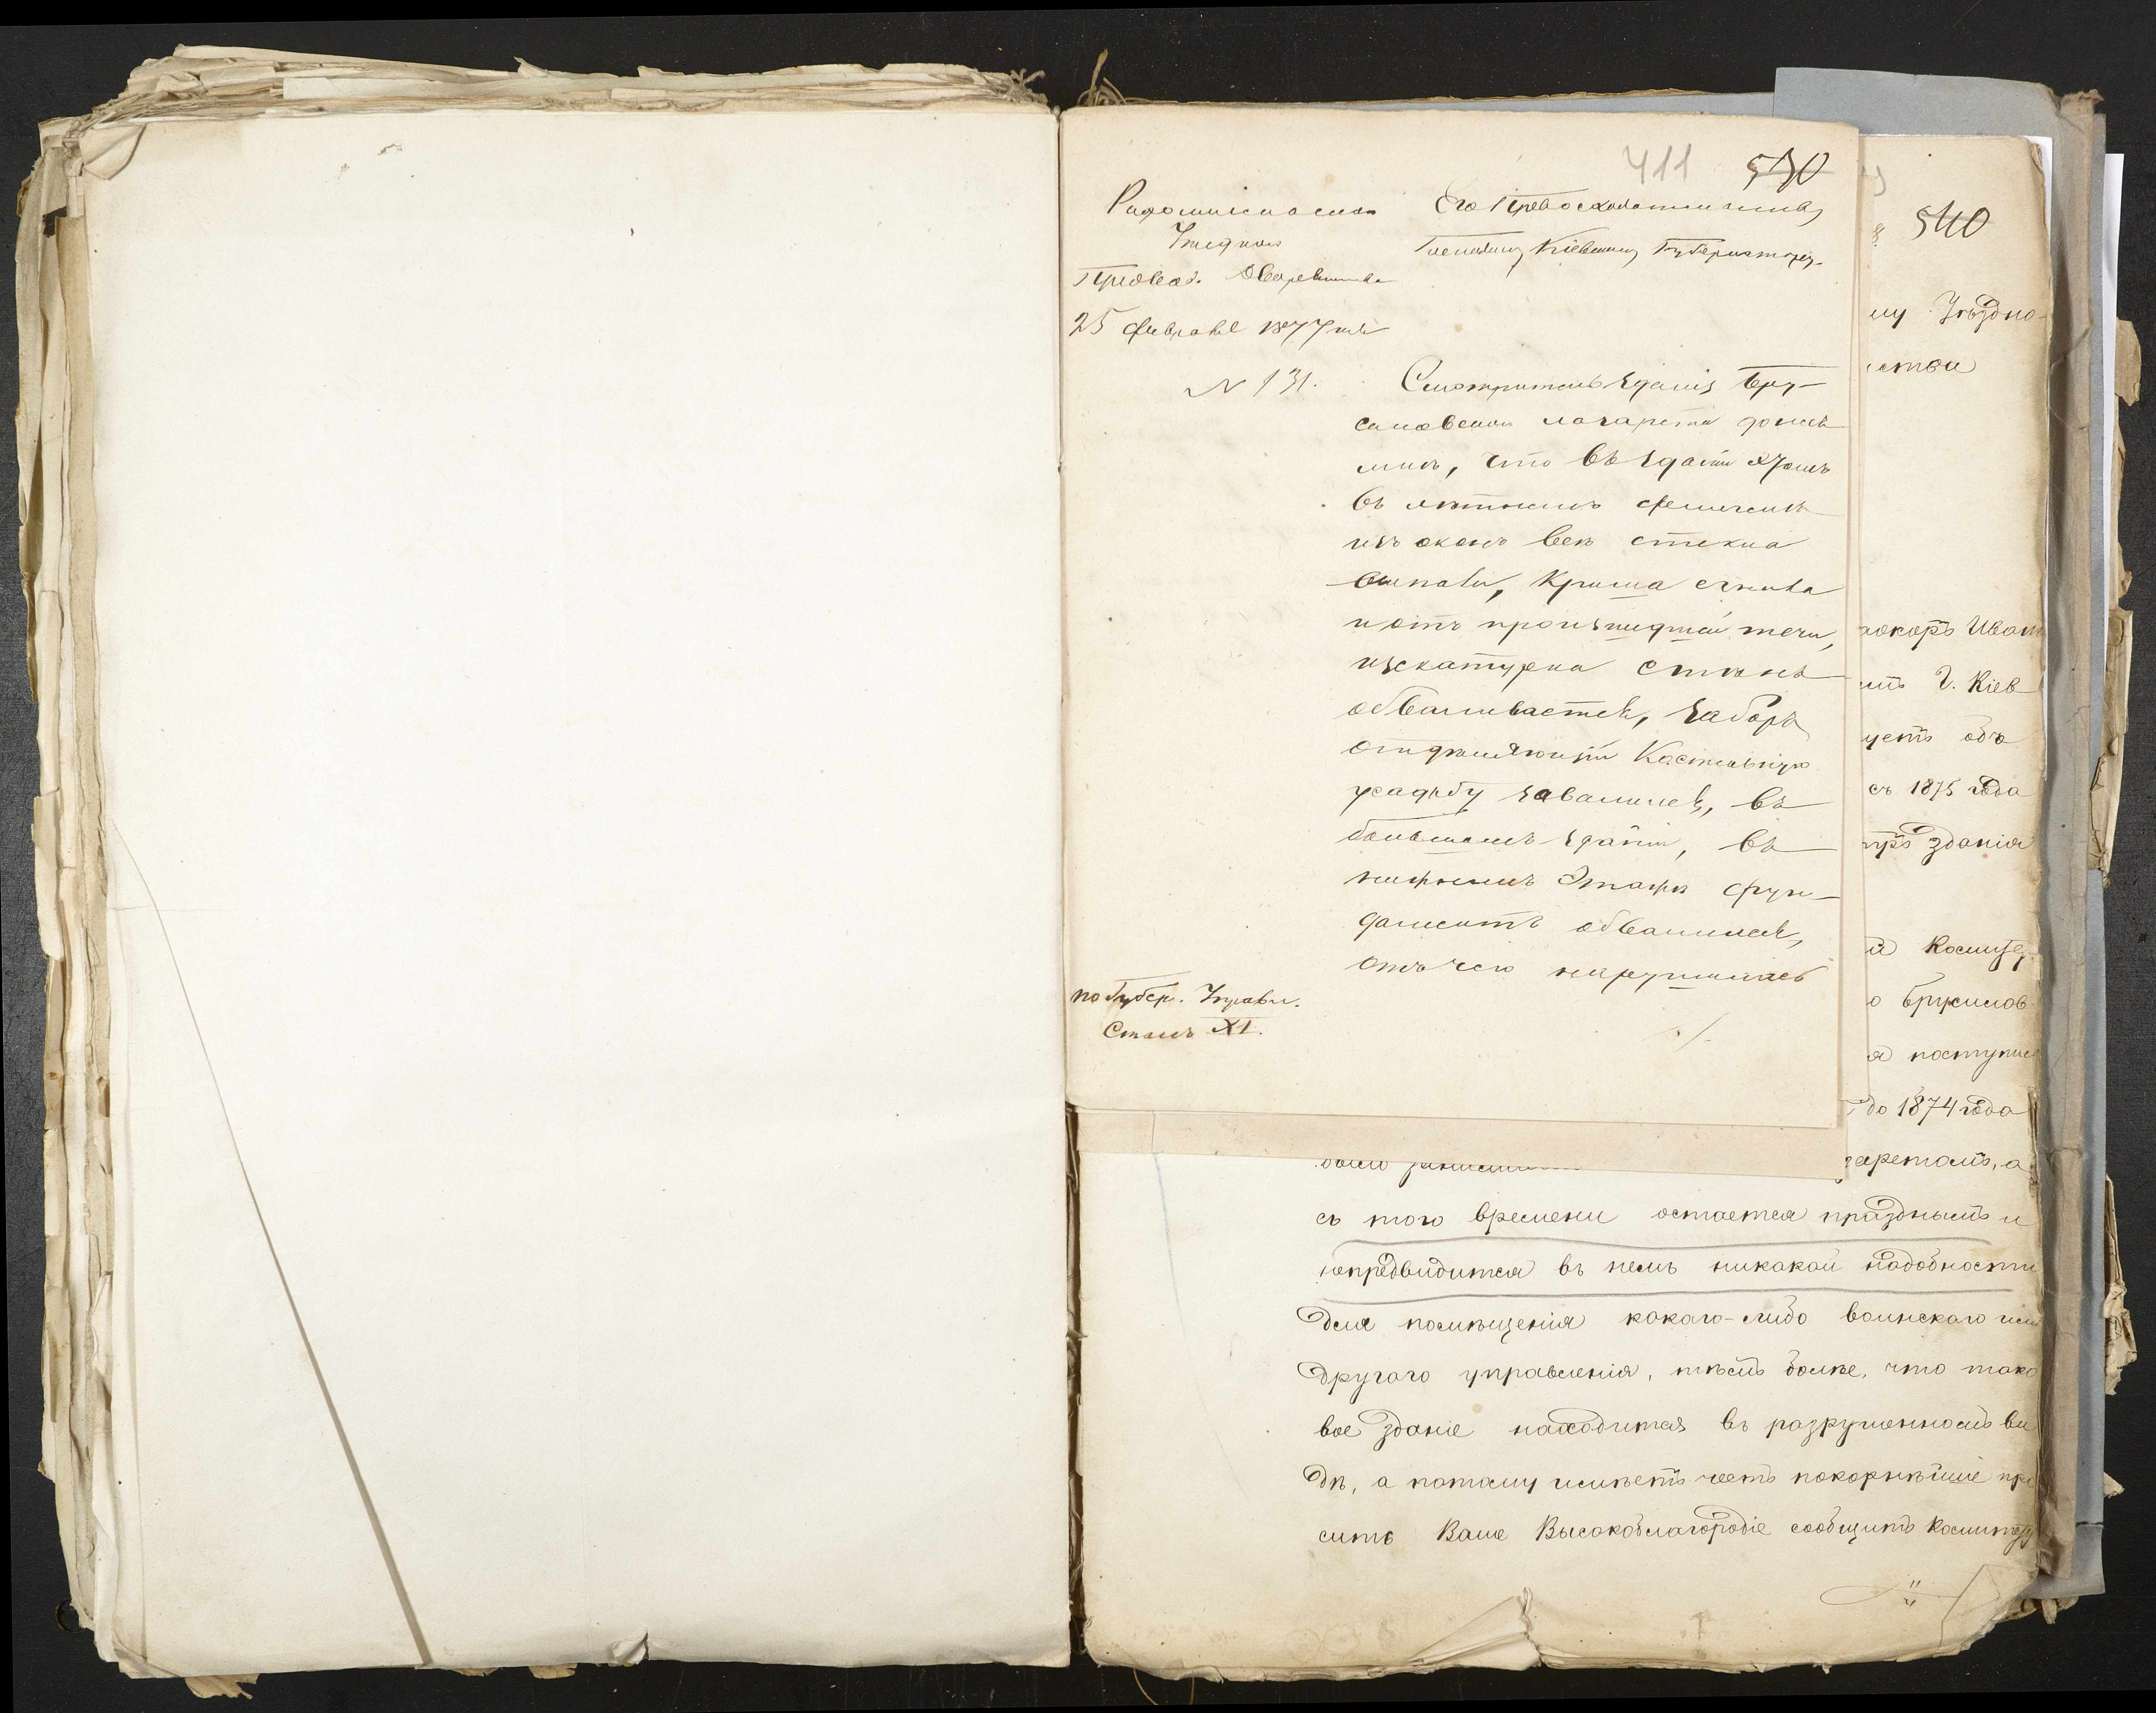 411 530
Радомысльскаго
Уѣзднаго
Предвод. Дворянства
25 февраля 1877 года
N 131.
Его Превосходительству
Господину Кіевскому Губернатору.
Смотритель зданія Бру-
силовскаго лазарета донесъ
мнѣ, что въ зданіи
въ флигелѣ
изъ оконъ всѣ стекла
выпали, крыша сгнила
и отъ произшедшей течи,
щекатурка стѣнъ
обваливается, заборъ
отдѣляющій Костельную
усадьбу завалился, въ
большомъ зданіи, въ
нижнемъ этажѣ фун-
даментъ обвалился,
отъ чего нарушилась
по Губер. Правл.
Столъ XI.
540
му Уѣздно-
ства
Иван
г. Кіев
уетъ объ
съ 1875 года
зданія
й Комитет
о Брусилов-
я поступил
до 1874 года
было заретомъ, а
съ того времени остается празднымъ и
непредвидится въ немъ никакой надобности
для помѣщенія какого-либо воинскаго или
другаго управленія, тѣмъ болѣе, что тако
вое зданіе находится въ разрушенномъ ви
дѣ, а потому имѣетъ честь покорнѣйше про
сить Ваше Высокоблагородіе сообщить Комитету